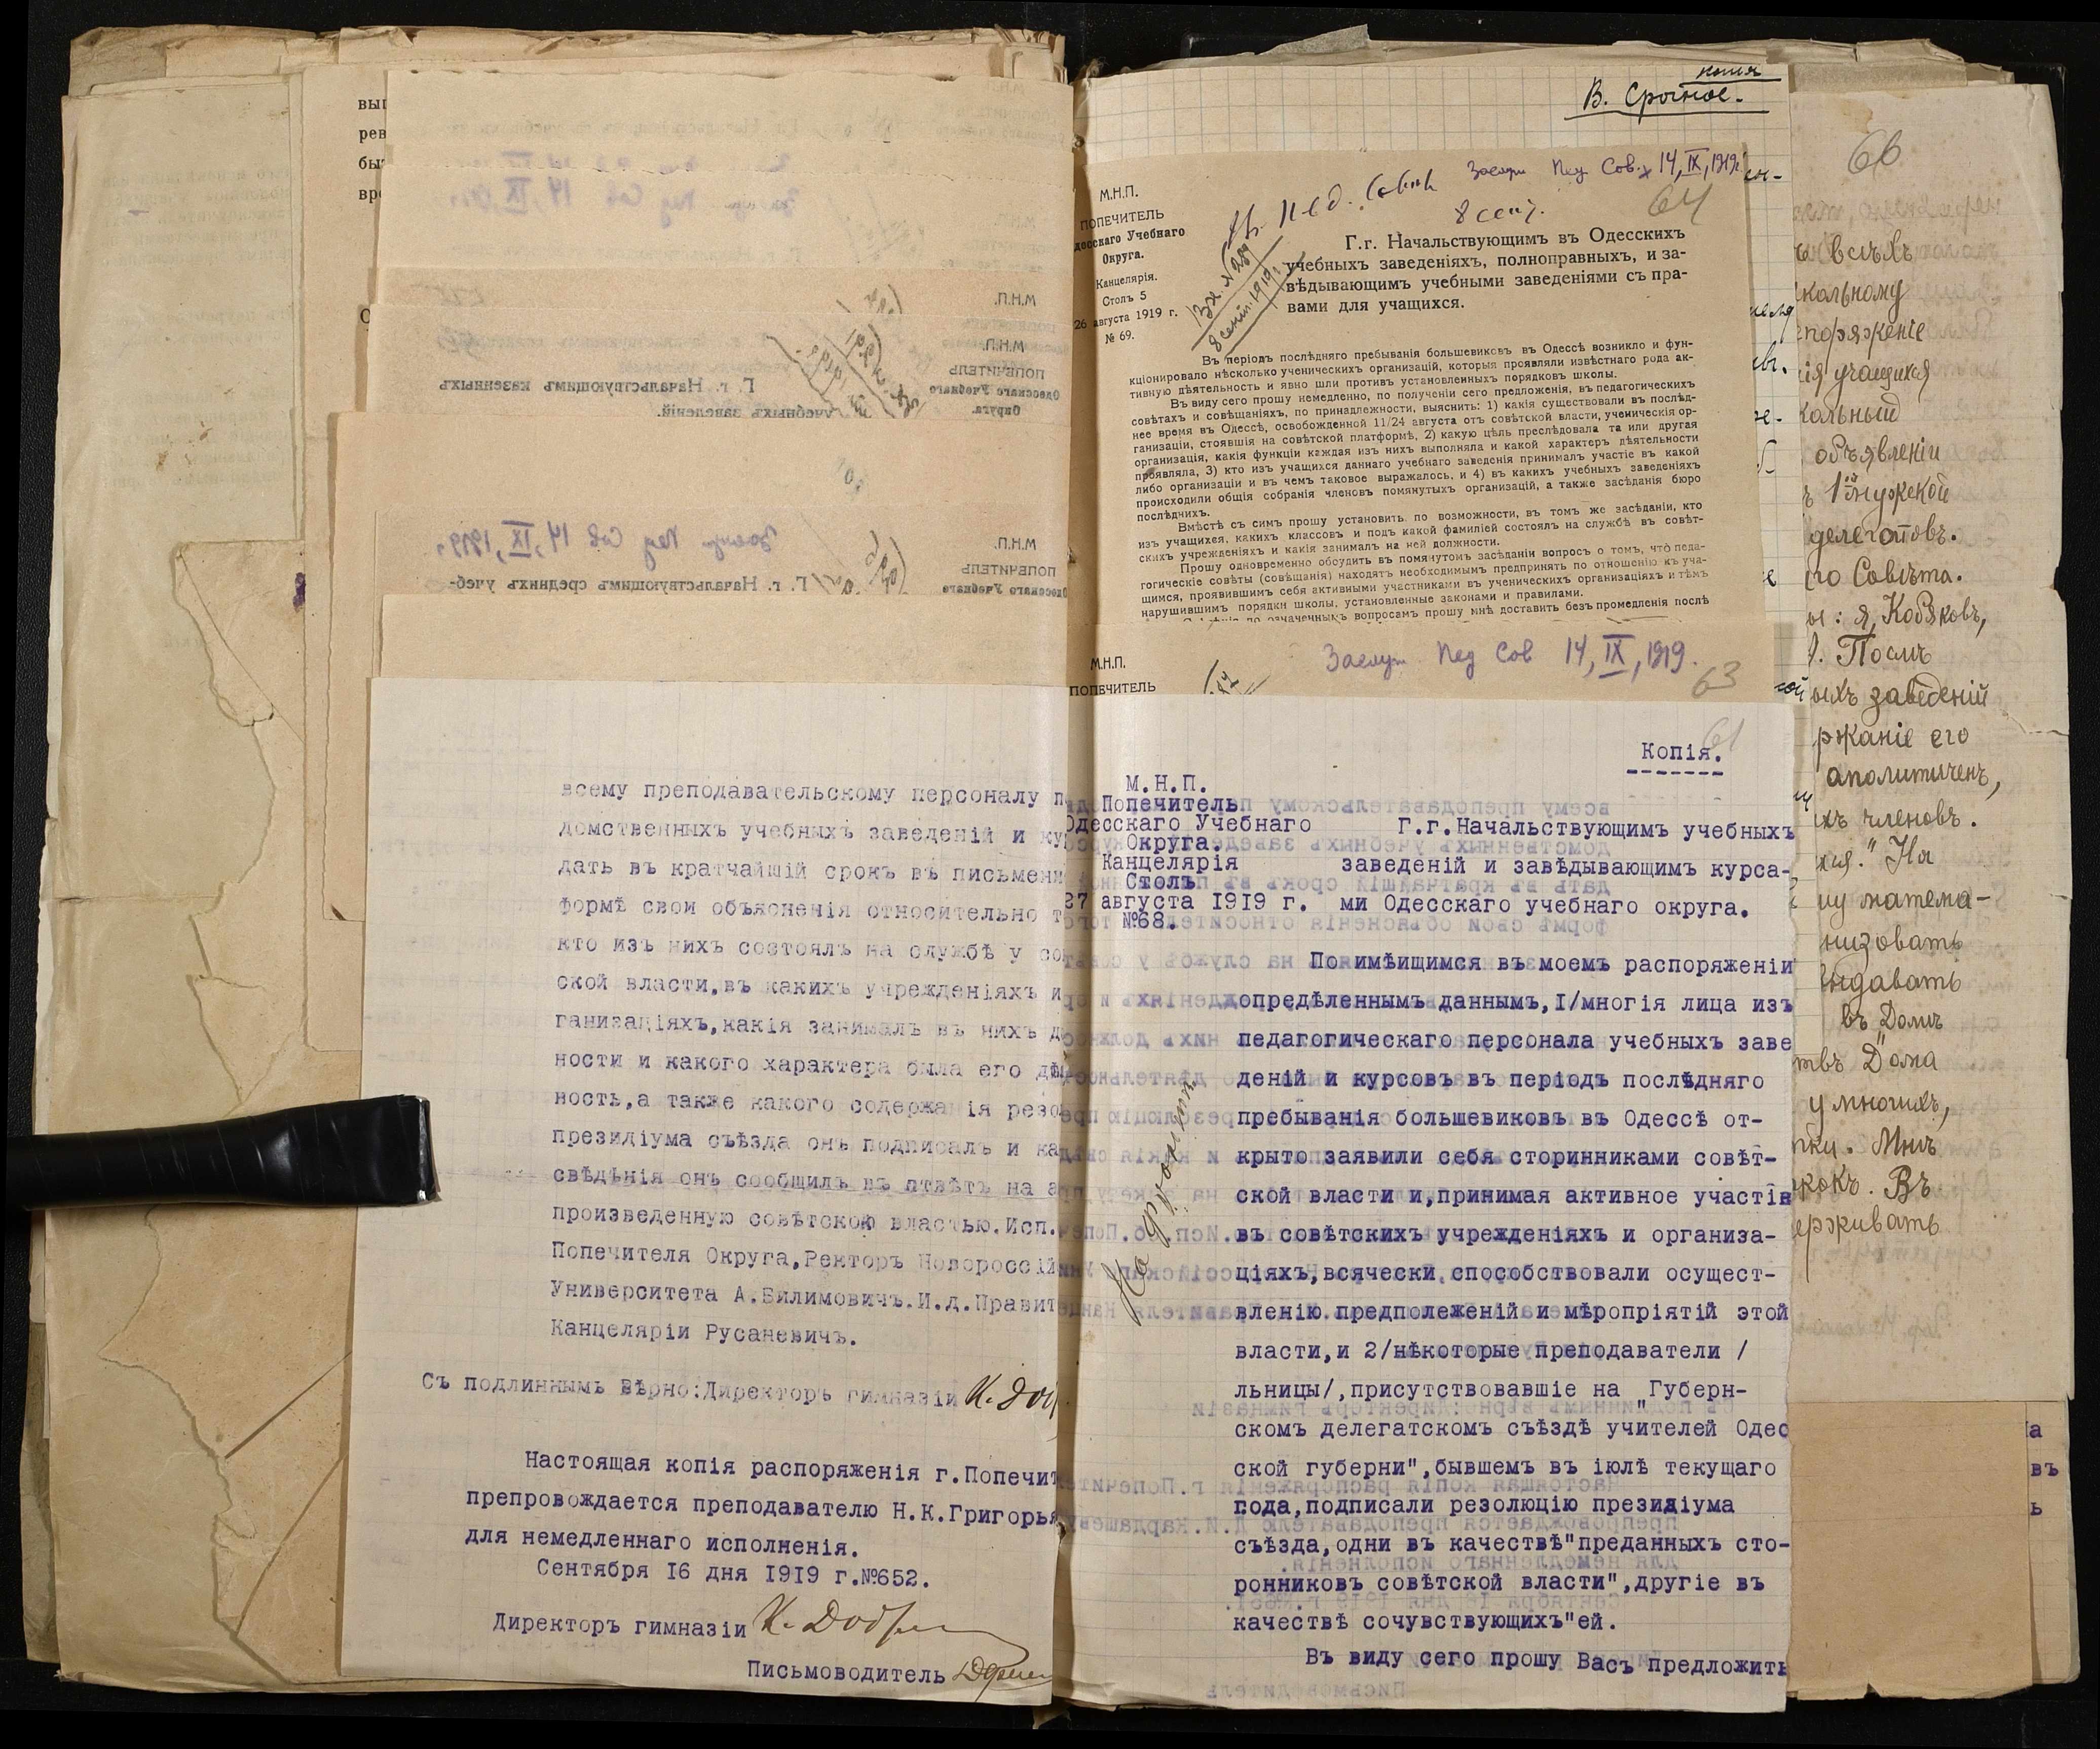 выш
рев
был
вре
М.Н.П.
ПОПЕЧИТЕЛЬ
Одесскаго Учебнаго
Округа.
Г. г. Начальствующимъ казенныхъ
учебныхъ заведеній.
Заслуш Пед Сов 14, IX, 1919 г.
М.Н.П.
ПОПЕЧИТЕЛЬ
Одесскаго Учебнаго
Г. г. Начальствующимъ среднихъ учеб-
всему преподавательскому персоналу п
домственныхъ учебныхъ заведеній и ку
дать въ кратчайшій срокъ въ письменн
формѣ свои объясненія относительно т
кто изъ нихъ состоялъ на службѣ у со
ской власти,въ какихъ учрежденіяхъ и
ганизаціяхъ,какія занималъ въ нихъ д
ности и какого характера была его дѣ
ность,а также какого содержанія резо
президіума съѣзда онъ подписалъ и ка
свѣдѣнія онъ сообщилъ въ отвѣтъ на а
произведенную совѣтской властью.Исп.
Попечителя Округа,Ректоръ Новороссій
Университета А.Билимовичъ.И.д.Правит
Канцеляріи Русаневичъ.
Съ подлиннымъ вѣрно:Директоръ гимназіи
Настоящая копія распоряженія г.Попечит
препровождается преподавателю Н.К.Григорья
для немедленнаго исполненія.
Сентября 16 дня 1919 г.№652.
Директоръ гимназіи
Письмоводитель
копія
В. Срочное.
Заслуш Пед Сов. 14, IX, 1919г
М.Н.П.
ПОПЕЧИТЕЛЬ
десскаго Учебнаго
Округа.
Канцелярія.
Столъ 5
26 августа 1919 г.
№ 69.
Пед.
8 сент.
64
Вх. № 289
8 сент. 1919 г.
Г.г. Начальствующимъ въ Одесскихъ
учебныхъ заведеніяхъ, полноправныхъ, и за-
вѣдывающимъ учебными заведеніями съ пра-
вами для учащихся.
Въ періодъ послѣдняго пребыванія большевиковъ въ Одессѣ возникло и фун-
кціонировало нѣсколько ученическихъ организацій, которыя проявляли извѣстнаго рода ак-
тивную дѣятельность и явно шли противъ установленныхъ порядковъ школы.
Въ виду сего прошу немедленно, по полученіи сего предложенія, въ педагогическихъ
совѣтахъ и совѣщаніяхъ, по принадлежности, выяснить: 1) какія существовали въ послѣд-
нее время въ Одессѣ, освобожденной 11/24 августа отъ совѣтской власти, ученическія ор-
ганизаціи, стоявшія на совѣтской платформѣ, 2) какую цѣль преслѣдовала та или другая
организація, какія функціи каждая изъ нихъ выполняла и какой характеръ дѣятельности
проявляла, 3) кто изъ учащихся даннаго учебнаго заведенія принималъ участіе въ какой
либо организаціи и въ чемъ таковое выражалось, и 4) въ какихъ учебныхъ заведеніяхъ
происходили общія собранія членовъ помянутыхъ организацій, а также засѣданія бюро
послѣднихъ.
Вмѣстѣ съ симъ прошу установить, по возможности, въ томъ же засѣданіи, кто
изъ учащихся, какихъ классовъ и подъ какой фамиліей состоялъ на службѣ въ совѣт-
скихъ учрежденіяхъ и какія занималъ на ней должности.
Прошу одновременно обсудить въ помянутомъ засѣданіи вопросъ о томъ, что педа-
гогическіе совѣты (совѣщанія) находятъ необходимымъ предпринять по отношенію къ уча-
щимся, проявившимъ себя активными участниками въ ученическихъ организаціяхъ и тѣмъ
нарушившимъ порядки школы, установленные законами и правилами.
по означеннымъ вопросамъ прошу мнѣ доставить безъ промедленія послѣ
М.Н.П.
ПОПЕЧИТЕЛЬ
Заслуш Пед Сов 14, IX, 1919.
63
61
Копія.
М.Н.П.
Попечитель
Одесскаго Учебнаго
Округа.
Канцелярія
Столъ
27 августа 1919 г.
№68.
Г.г.Начальствующимъ учебныхъ
заведеній и завѣдывающимъ курса-
ми Одесскаго учебнаго округа.
По имѣищимся въ моемъ распоряженіи
опредѣленнымъ даннымъ,I/многія лица изъ
педагогическаго персонала учебныхъ заве
деній и курсовъ въ періодъ послѣдняго
пребыванія большевиковъ въ Одессѣ от-
крыто заявили себя сторинниками совѣт-
ской власти и,принимая активное участіе
въ совѣтскихъ учрежденіяхъ и организа-
ціяхъ,всячески способствовали осущест-
вленію предполеженій и мѣропріятій этой
власти,и 2/нѣкоторые преподаватели /
льницы/,присутствовавшіе на "Губерн-
скомъ делегатскомъ съѣздѣ учителей Одес
ской губерни",бывшемъ въ іюлѣ текущаго
года,подписали резолюцію президіума
съѣзда,одни въ качествѣ"преданныхъ сто-
ронниковъ совѣтской власти",другіе въ
качествѣ сочувствующихъ"ей.
Въ виду сего прошу Васъ предложить
66
всѣхъ
кольному
споряженіе
нія учащихся
кольный
объявленіи
1й мужской
делегатовъ.
го Совѣта.
ы: я, Кобяковъ,
Послѣ
ыхъ заведеній
ржаніе его
аполитиченъ,
ихъ членовъ.
На
му матема-
низовать
выдавать
въ Домѣ
"Дома
у многихъ,
Мнѣ
Въ
ерживать
а
въ
ь